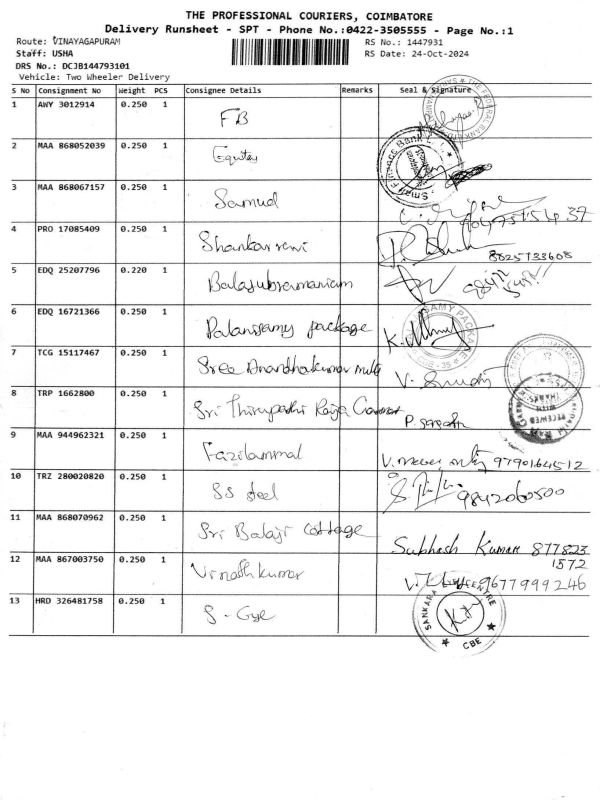 THE PROFESSIONAL COURIERS, COIMBATORE
Delivery Runsheet - SPT - Phone No.:0422-3505555 - Page No.:1
Route: VINAYAGAPURAM RS No.: 1447931
Staff: USHA RS Date: 24-Oct-2024
DRS No.: DCJB144793101
Vehicle: Two Wheeler Delivery
S No Consignment No Weight PCS Consignee Details Remarks Seal & Signature
1 AWY 3012914 0.250 1 FB
2 MAA 868052039 0.250 1 Equitas
3 MAA 868067157 0.250 1 Samud
4 PRO 17085409 0.250 1 8025133608
5 EDQ 25207796 0.220 1 Balasubramaniam
6 EDQ 16721366 0.250 1 Palanisamy package
7 TCG 15117467 0.250 1 Sree Anandhakumar mills
8 TRP 1662800 0.250 1 Sri
9 MAA 944962321 0.250 1 9790164512
10 TRZ 280020820 0.250 1 SS steel 9842060500
11 MAA 868070962 0.250 1 Sri Balaji cottage Subhash Kumar 877823
1572
12 MAA 867003750 0.250 1 9677999246
13 HRD 326481758 0.250 1 S-Eye
SANKARA CENTRE
CBE